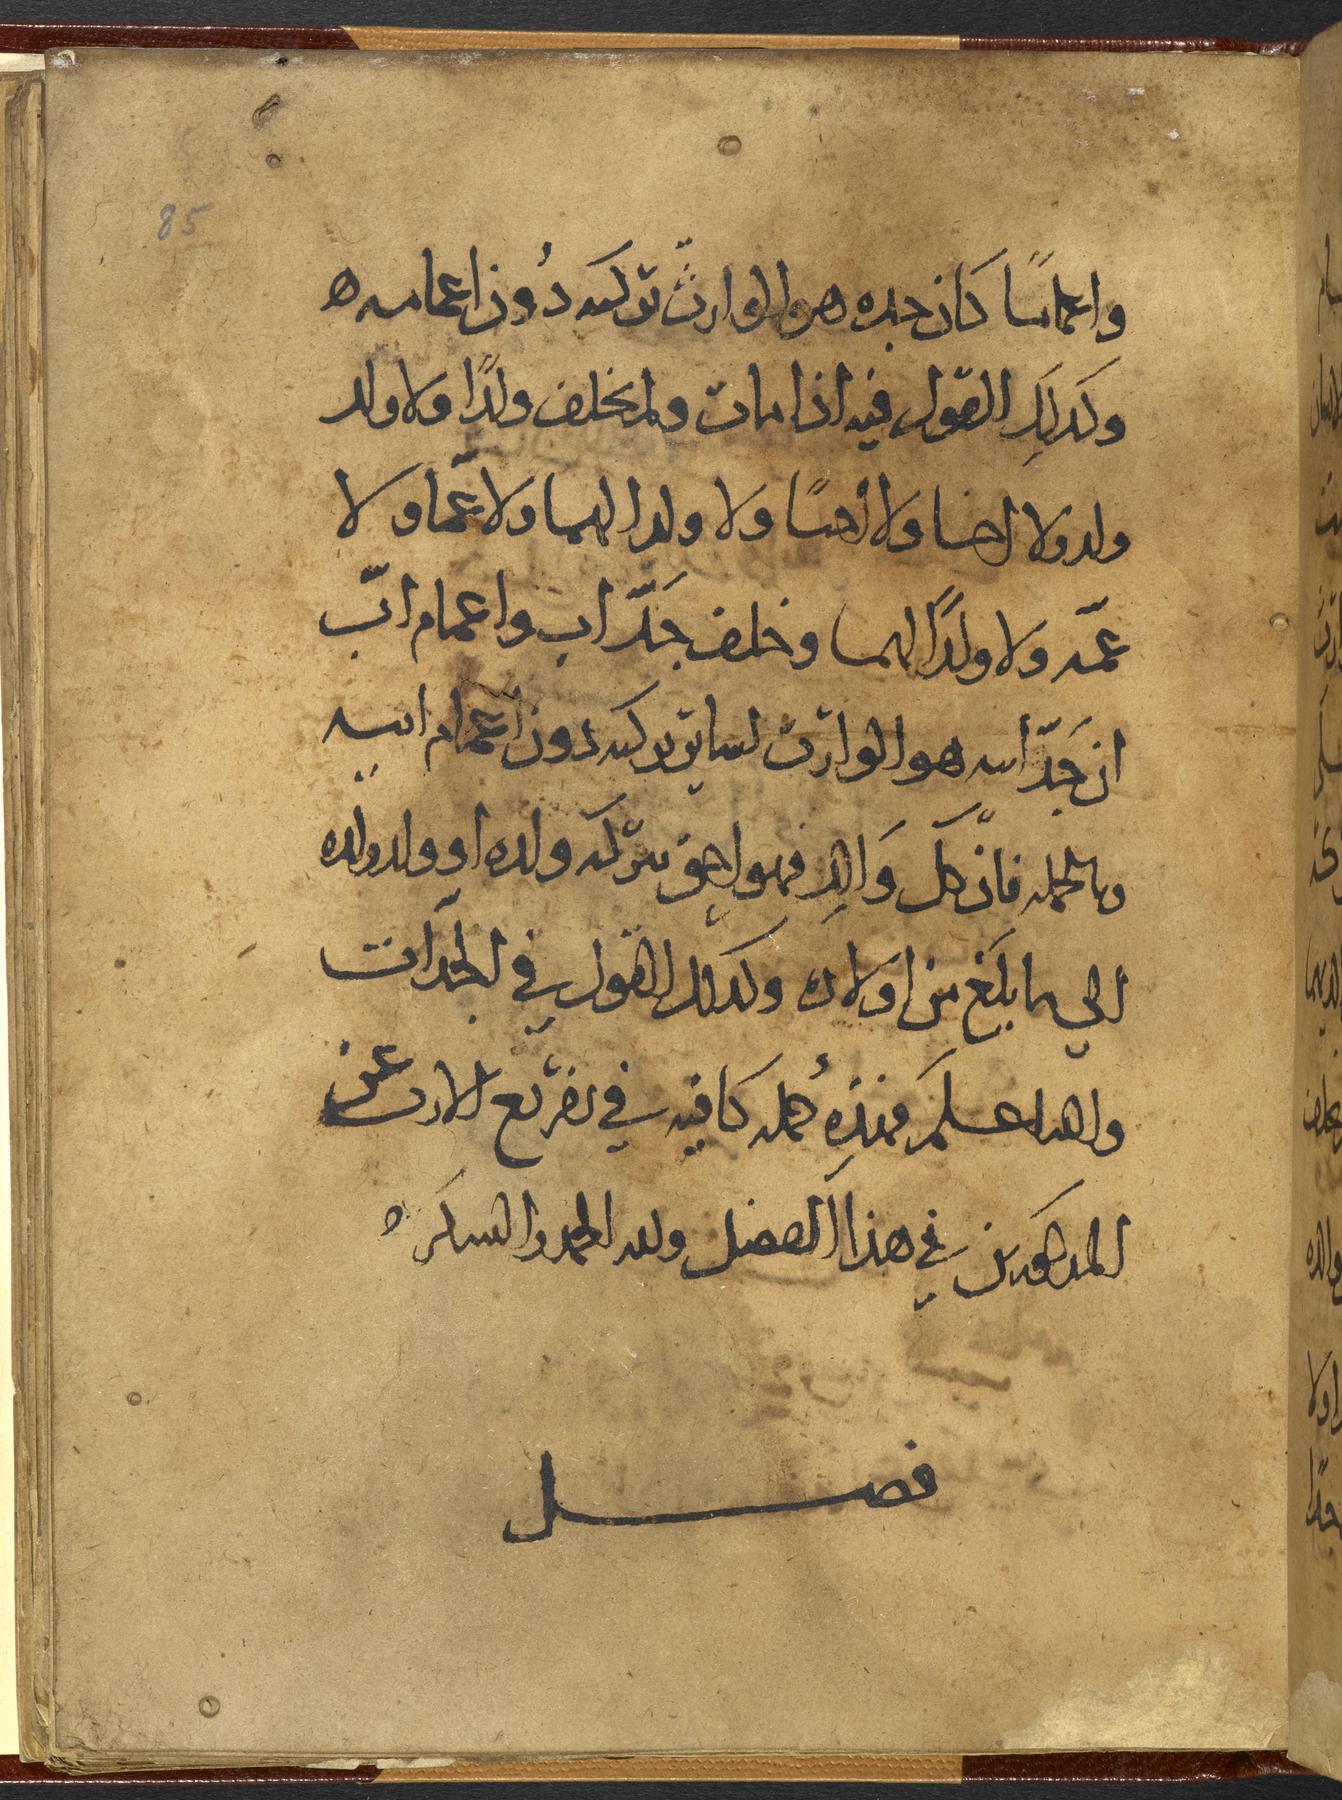 85
واعمامًا كان جده هو الوارث تركته دُون اعمامه ه
وكذلِكَ القول فيه اذا مات ولم يخلف ولدًا ولا ولد
ولد ولا اخا ولا اختًا ولا ولدا لهما ولا عمّا ولا
عمّه ولا ولدًا لهما وخلف جَدّ اب واعمام ابّ
ان جَدّ ابيه هو الوارث لساير تركته دون اعمام ابيه
وبالجمله فانّ كلّ وَالِد فهو احِق بتركه ولده او ولد ولده
الي ما بلغ من اولاده وكذلك القول في الجدّات
والله اعلم فهذِه جُمله كافيه في تفريع الارث عن
المذكورين في هذا الفصل ولله الحمد والشكر ه
فصل